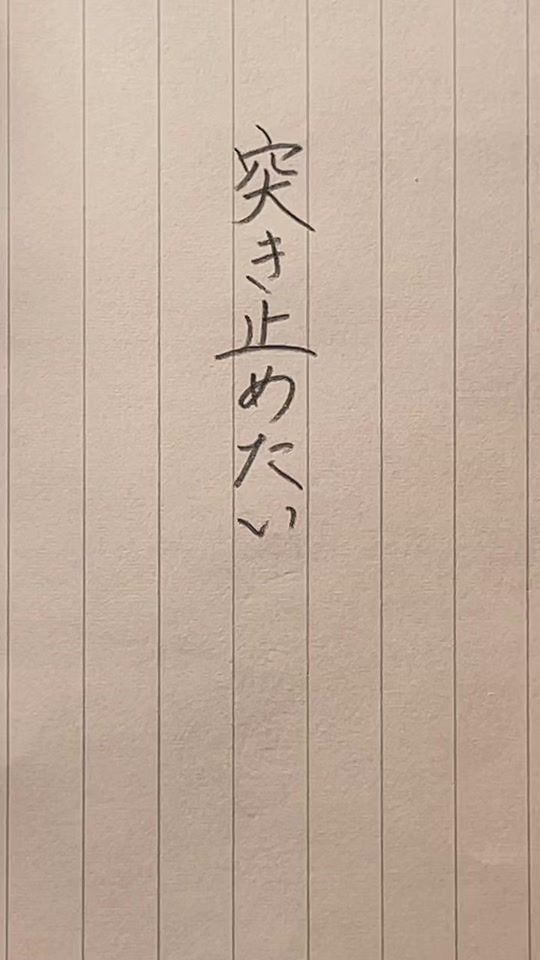 突き止めたい